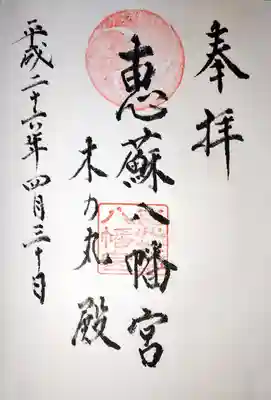 奉拝
恵蘇八幡宮
木の丸殿
平成二十六年四月三十日